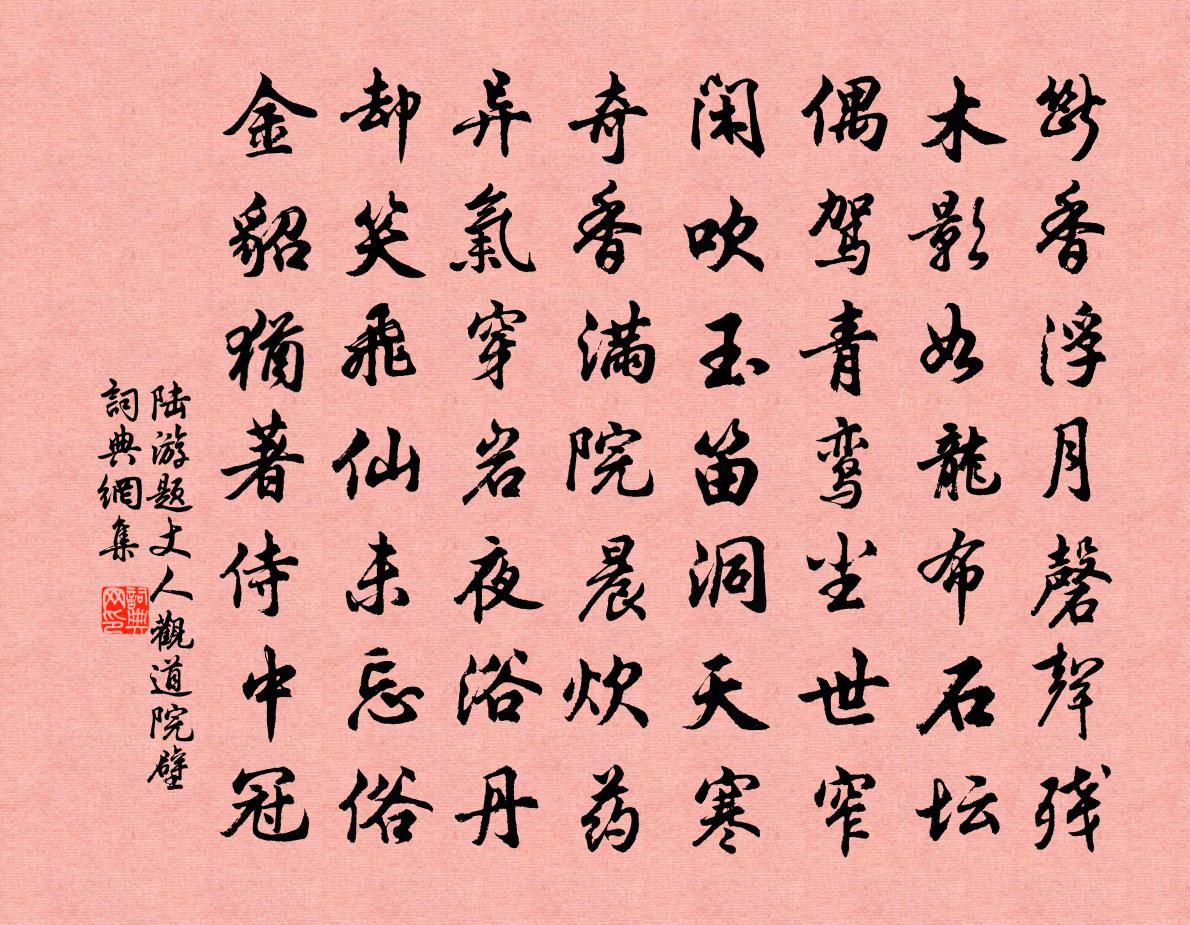 断香浮月磬聲残
木影如龍布石坛
偶驾青鸾尘世窄
闲吹玉笛洞天寒
奇香滿院晨炊药
异氣穿岩夜浴丹
却笑飛仙未忘俗
金貂猶著侍中冠
陆游题丈人觀道院壁
詞典網集
詞典网印